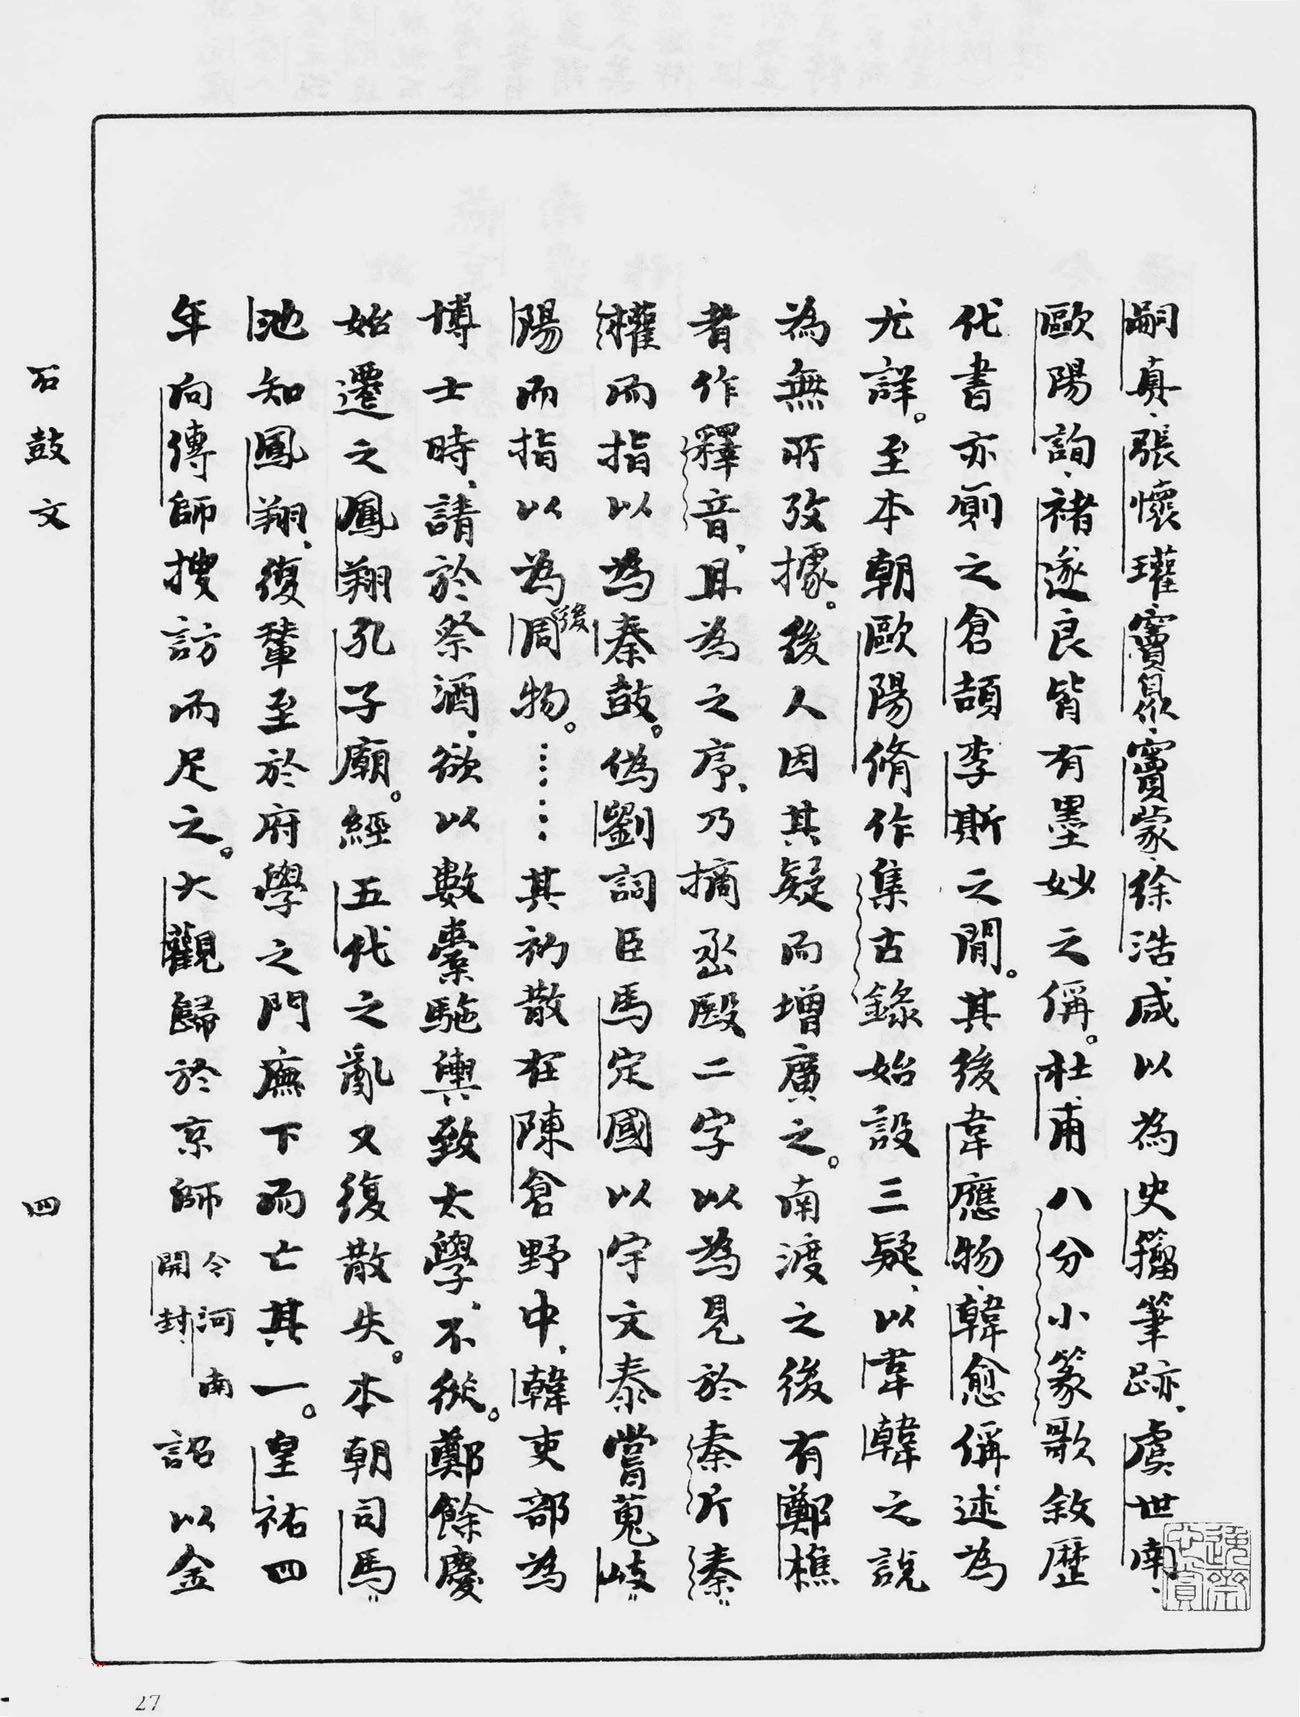 嗣真、張懷瓘、竇臮、竇蒙、徐浩、咸以為史籀筆跡、虞世南、
歐陽詢、褚遂良皆有墨妙之稱。杜甫八分小篆歌敘歷
代書亦厠之倉頡李斯之間。其後韋應物、韓愈稱述為
尤詳。至本朝歐陽脩作集古錄始設三疑、以韋韓之說
為無所攷據。後人因其疑而增廣之。南渡之後有鄭樵
者作釋音、且為之序、乃摘丞殹二字以為見於秦斤秦
權而指以為秦鼓。偽劉詞臣馬定國以宇文泰嘗蒐岐
陽而指以為後周物。……其初散在陳倉野中、韓吏部為
博士時、請於祭酒、欲以數橐駞輿致太學、不從。鄭餘慶
始遷之鳳翔孔子廟。經五代之亂又復散失。本朝司馬
池知鳳翔、復輦至於府學之門廡下而亡其一。皇祐四
年向傳師搜訪而足之。大觀歸於京師今河南開封詔以金
石鼓文
四
27